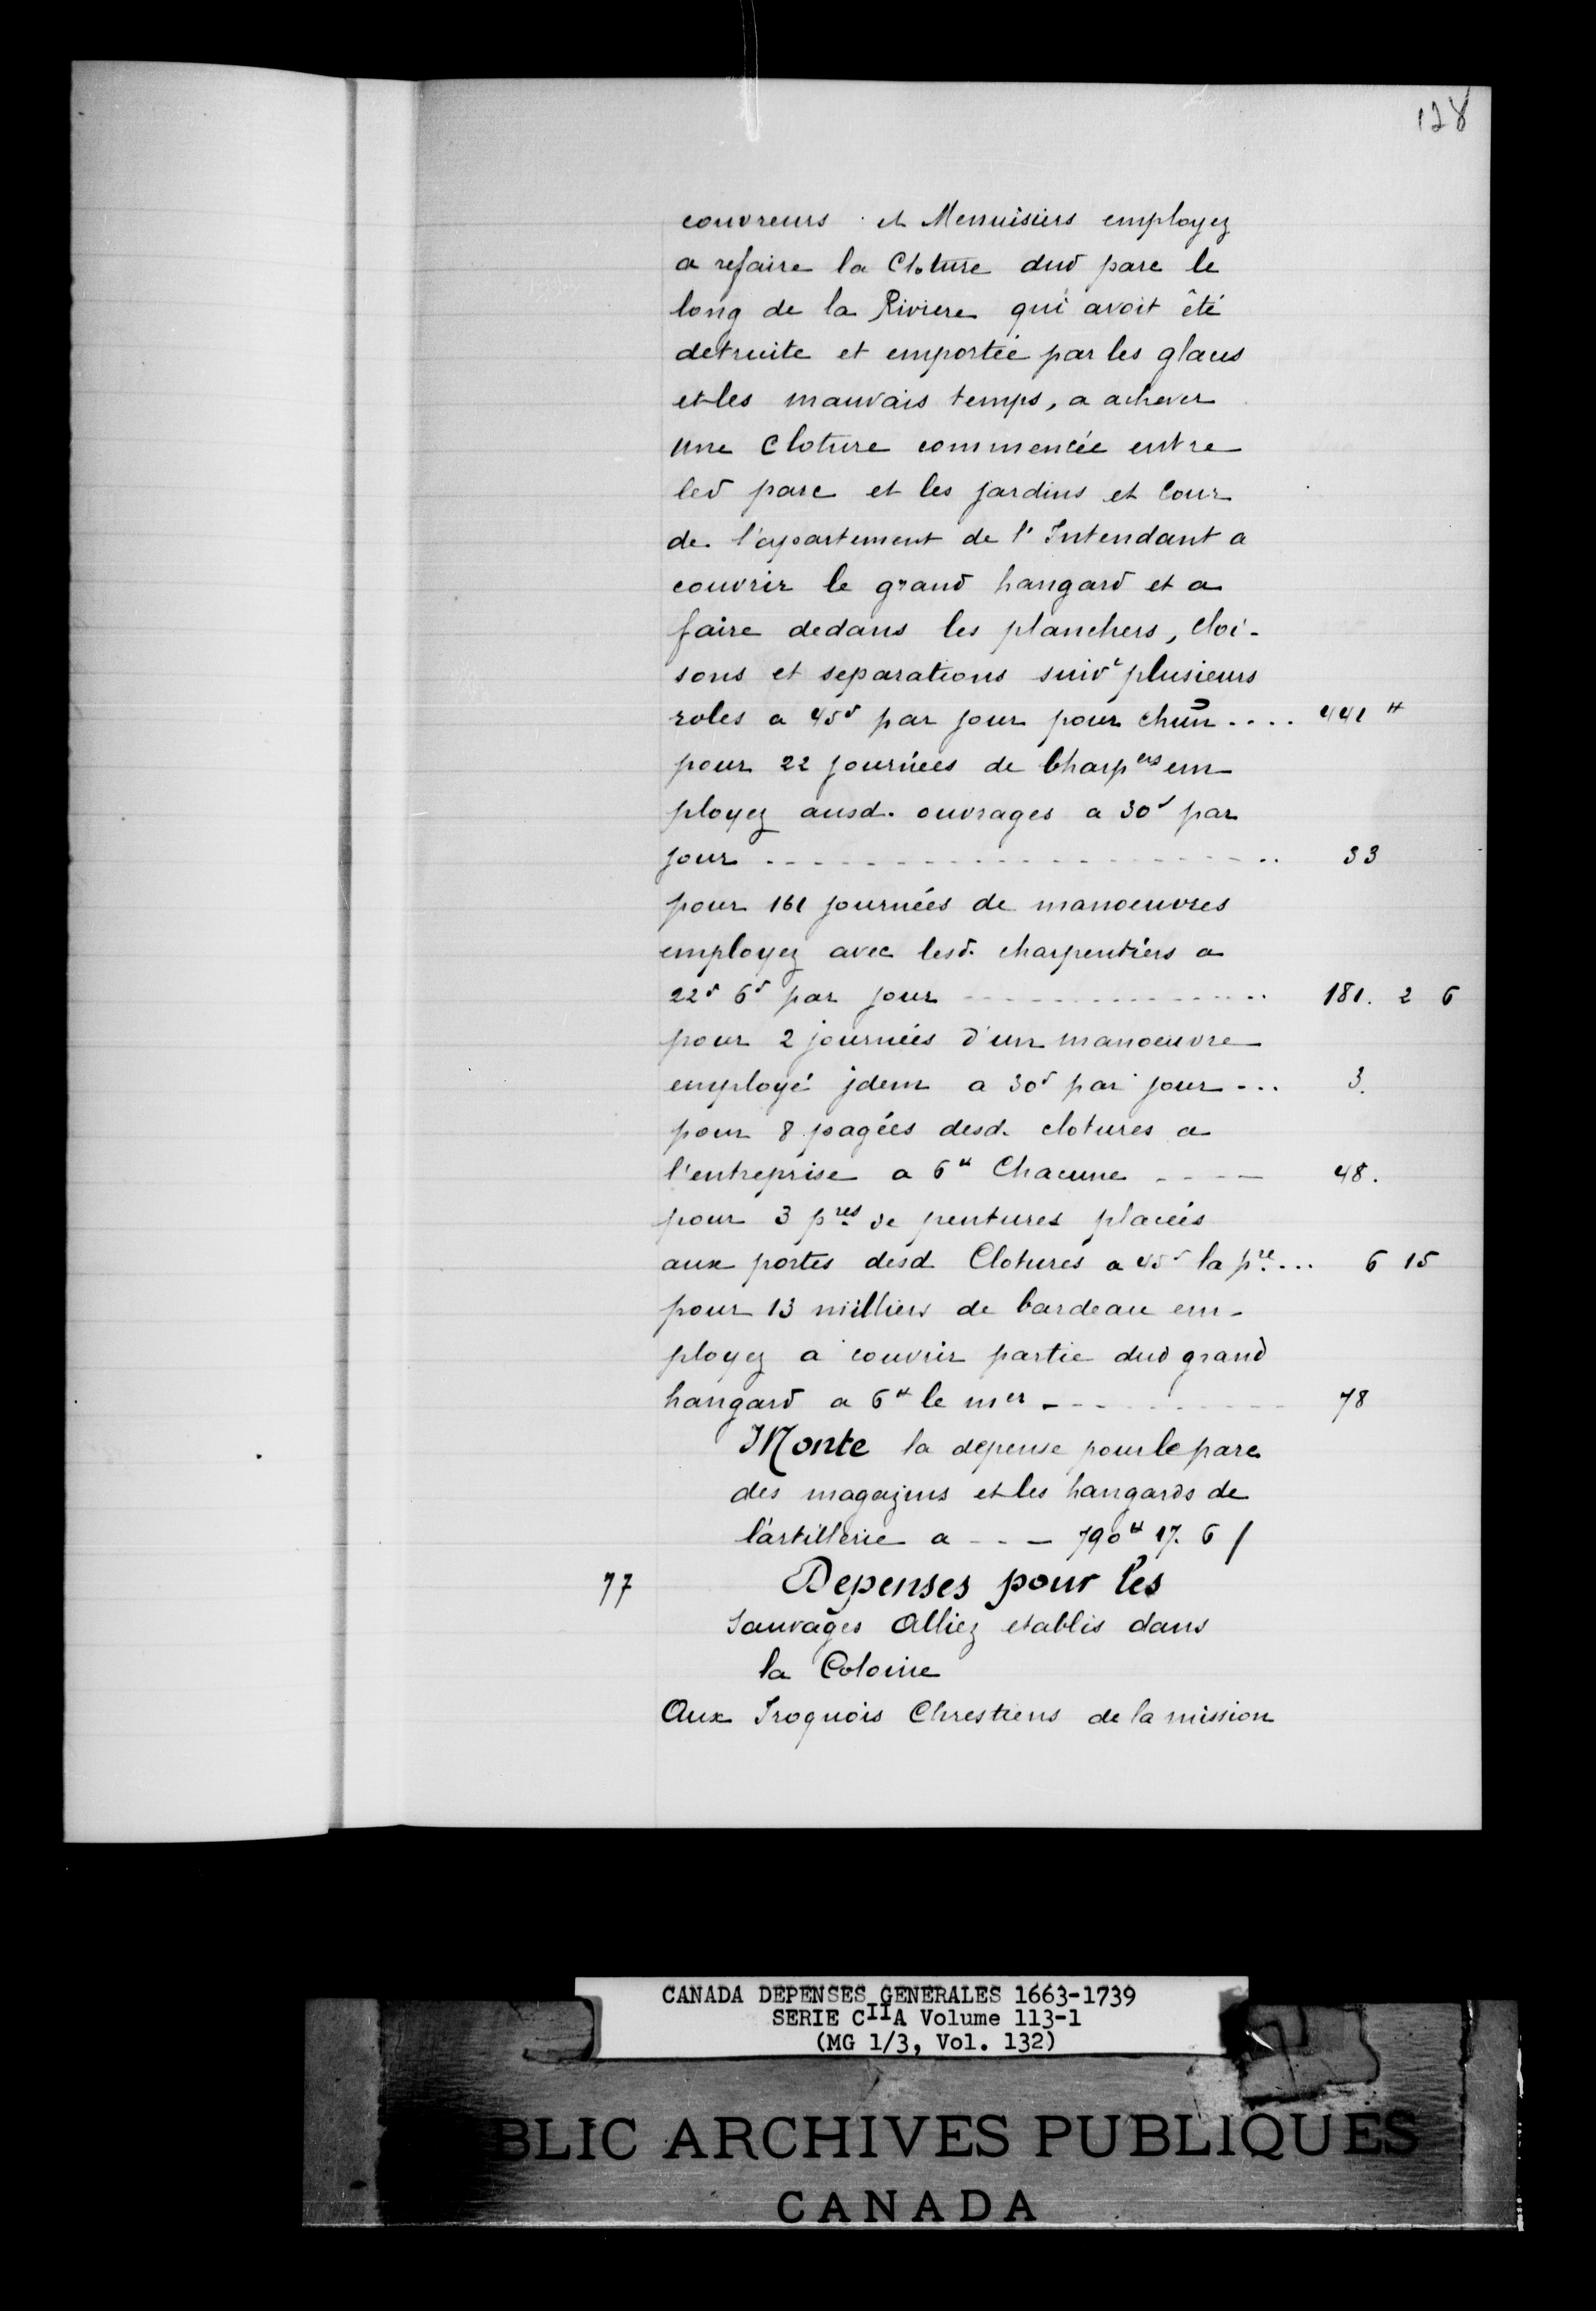 128
couvreurs et Menuisiers employez
a refaire la Cloture dud parc le
long de la Riviere qui avoit êté
detruite et emportée par les glaces
et les mauvais temps, a achever
une Cloture commencée entre
led parc et les jardins et Cour
de l'apartement de l'Intendant a
couvrir le grand hangard et a
faire dedans les planchers, cloi-
sons et separations suivt plusieurs
roles a 45s par jour pour chun .... 441 ₶
pour 22 journées de Charpers em
ployez ausd. ouvrages a 30s par
jour .................... 33
pour 161 journées de manoeuvres
employez avec lesd. charpentiers a
22s 6d par jour ............... 181. 2 6
pour 2 journées d'un manoeuvre
employé jdem a 30s par jour ... 3.
pour 8 pagées desd. clotures a
l'entreprise a 6₶ Chacune ---- 48.
pour 3 pres de pentures placées
aux portes desd Clotures a 45s la pre... 6 15
pour 13 milliers de bardeau em-
ployez a couvrir partie dud grand
hangard a 6₶ le mer .......... 78
Monte la depense pour le parc
des magazins et les hangards de
l'artillerie a --- 790₶ 17. 6 /
77 Depenses pour les
Sauvages Alliez etablis dans
la Colonie
Aux Iroquois Chrestiens de la mission
CANADA DEPENSES GENERALES 1663-1739
SERIE CIIA Volume 113-1
(MG 1/3, Vol. 132)
BLIC ARCHIVES PUBLIQUES
CANADA